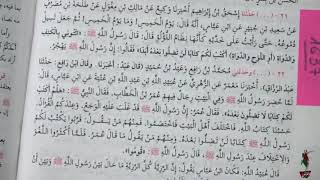 ٢١ - ( ... ) حدثنا إسحق بن إبراهيم أخبرنا وكيع عن مالك بن مغول عن طلحة بن مصرف
عن سعيد بن جبير عن ابن عباس، أنه قال: يوم الخميس! وما يوم الخميس! ثم جعل تسيل
دموعه، حتى رأيت على خديه كأنها نظام اللؤلؤ قال: قال رسول الله ﷺ:
والدواة (أو اللوح والدواة) أكتب لكم كتابا لن تضلوا بعده أبدا» فقالوا: إن رسول الله ﷺ يهجر.
٢٢ - ( ... ) وحدثني محمد بن رافع وعبد بن حميد
عبد الرزاق. أخبرنا معمر عن الزهري، عن عبيد الله بن عبد الله بن عتبة، عن ابن عباس، قال:
لما حضر رسول الله ﷺ وفي البيت رجال فيهم عمر بن الخطاب. فقال النبي ﷺ: «هلم أكتب لكم
كتابا لا تضلون بعده». فقال عمر: إن رسول الله ﷺ
حسبنا كتاب الله. فاختلف أهل البيت. فاختصموا. فمنهم من يقول: قربوا يكتب لكم
رسول الله ﷺ كتابا لن تضلوا بعده. ومنهم من يقول ما قال عمر. فلما أكثروا اللغو
والاختلاف عند رسول الله ﷺ، قال رسول الله ﷺ: «قوموا».
فكان ابن عباس يقول: إن الرزية كل الرزية ما حال بين رسول الله ﷺ وبين أن